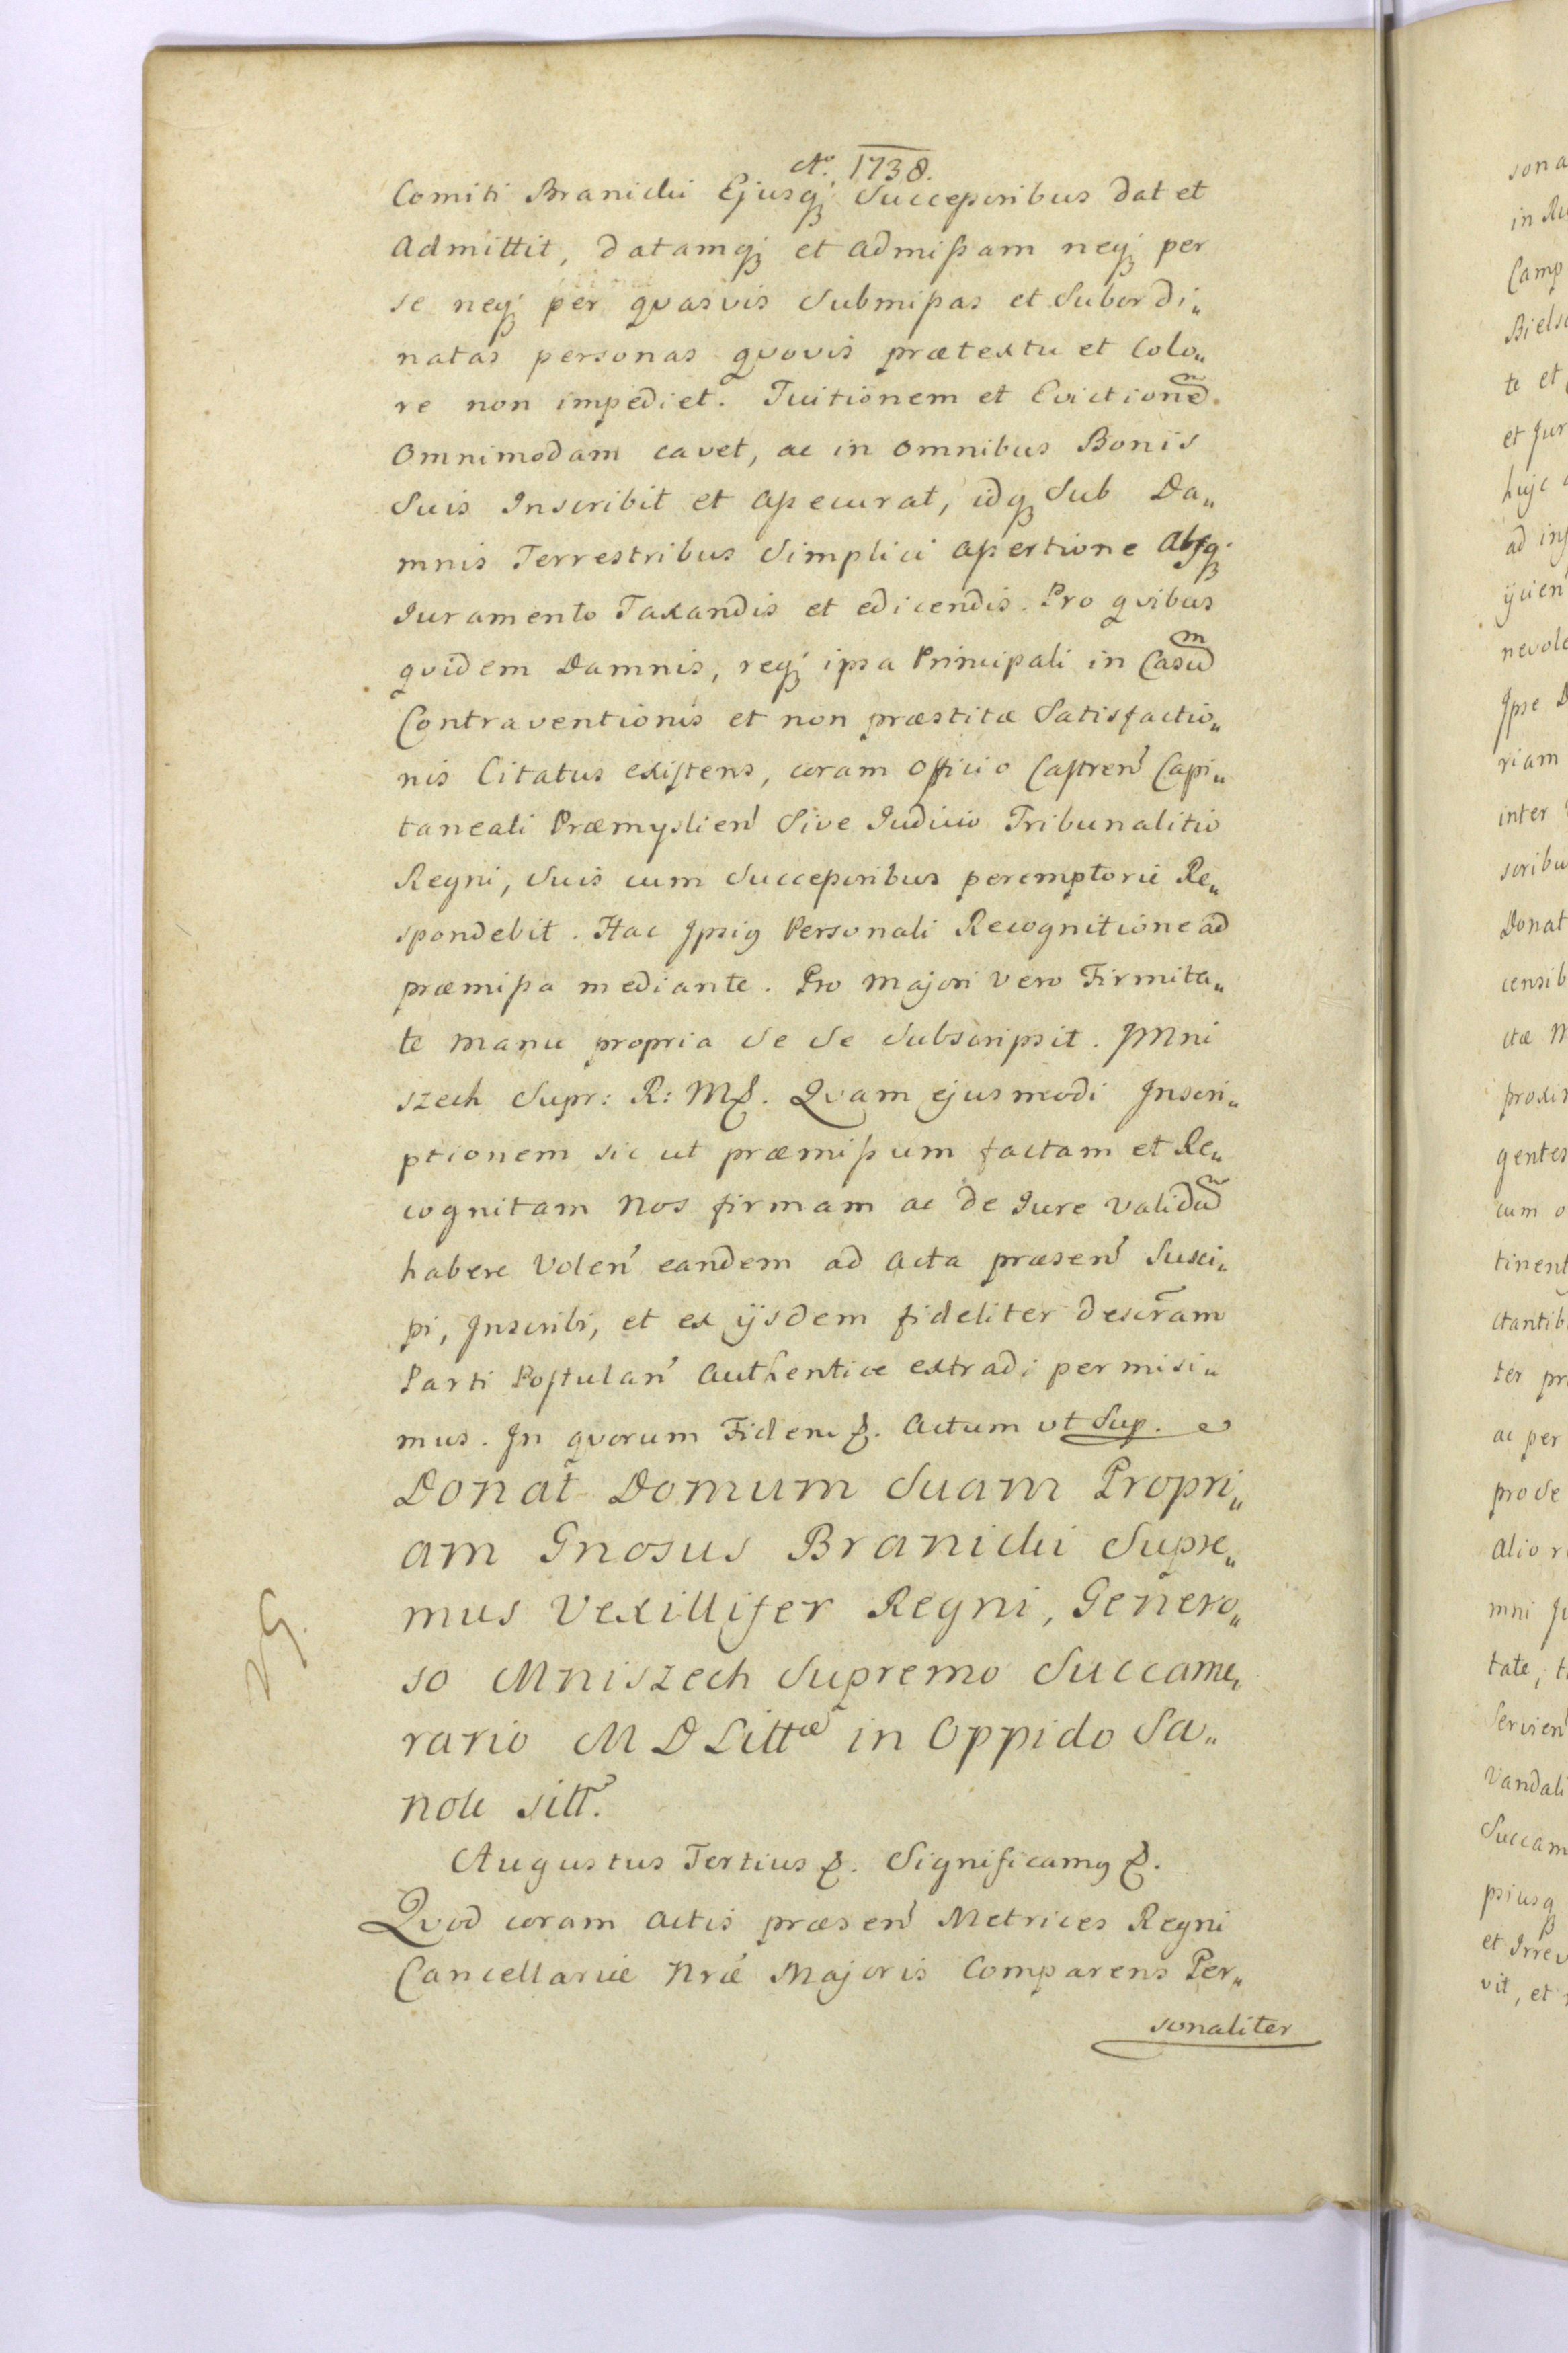 Aº. 1738.
Comiti Branicki Ejusq; Successoribus dat et
Admittit, datamq; et admissam neq; per
se neq; per quasvis Submissas et Subordi„
natas personas quovis prætextu et Colo„
re non impediet. Tuitionem et Evictionem
Omnimodam cavet, ac in omnibus Bonis
Suis Inscribit et assecurat, idq; Sub Da„
mnis Terrestribus Simplici assertione Absq;
Iuramento Taxandis et edicendis. Pro quibus
quidem Damnis, req; ipsa Principali in Casum
Contraventionis et non præstitæ Satisfactio„
nis Citatus existens, coram Officio Castren̄ Capi„
taneali Præmyslien̄ Sive Iudicio Tribunalitio
Regni, Suis cum Successoribus peremptorie Re„
spondebit. Hac Ipsiꝰ Personali Recognitione ad
præmissa mediante. Pro majori vero Firmita„
te manu propria Se Se Subscripsit. JMni
szech Supr: R: M&. Quam ejusmodi Inscri„
ptionem sic ut præmissum factam et Re„
cognitam Nos firmam ac de Iure validam
habere Volen̄ eandem ad Acta præsen̄ Susci„
pi, Inscribi, et ex ijsdem fideliter descr̄am
Parti Postulan̄ Authentice extradi permisi„
mus. In quorum Fidem &. Actum ut Sup.
Donat Domum Suam Propri„
am Gnosus Branicki Supre„
mus Vexillifer Regni, Genero„
so Mniszech Supremo Succame„
rario M D Littæ in Oppido Sa„
nok sitt.
29.
Augustus Tertius &. Significamꝰ &.
Quod coram Actis præsen̄ Metrices Regni
Cancellariæ Nr̄æ Majoris Comparens Per„
sonaliter
sona
in Ru
Camp
Biels
te et
et Jur
hujc
ad in
ijcien
nevole
Ipse D
riam
inter
scribu
Donat
censib
ctæ M
proxi
gentes
cum o
tinent
ctantib
ter pr
ac per
pro se
alio r
mni Ju
tate, t
Servien
Vandali
Succam
psiusq
et Irrev
vit, et